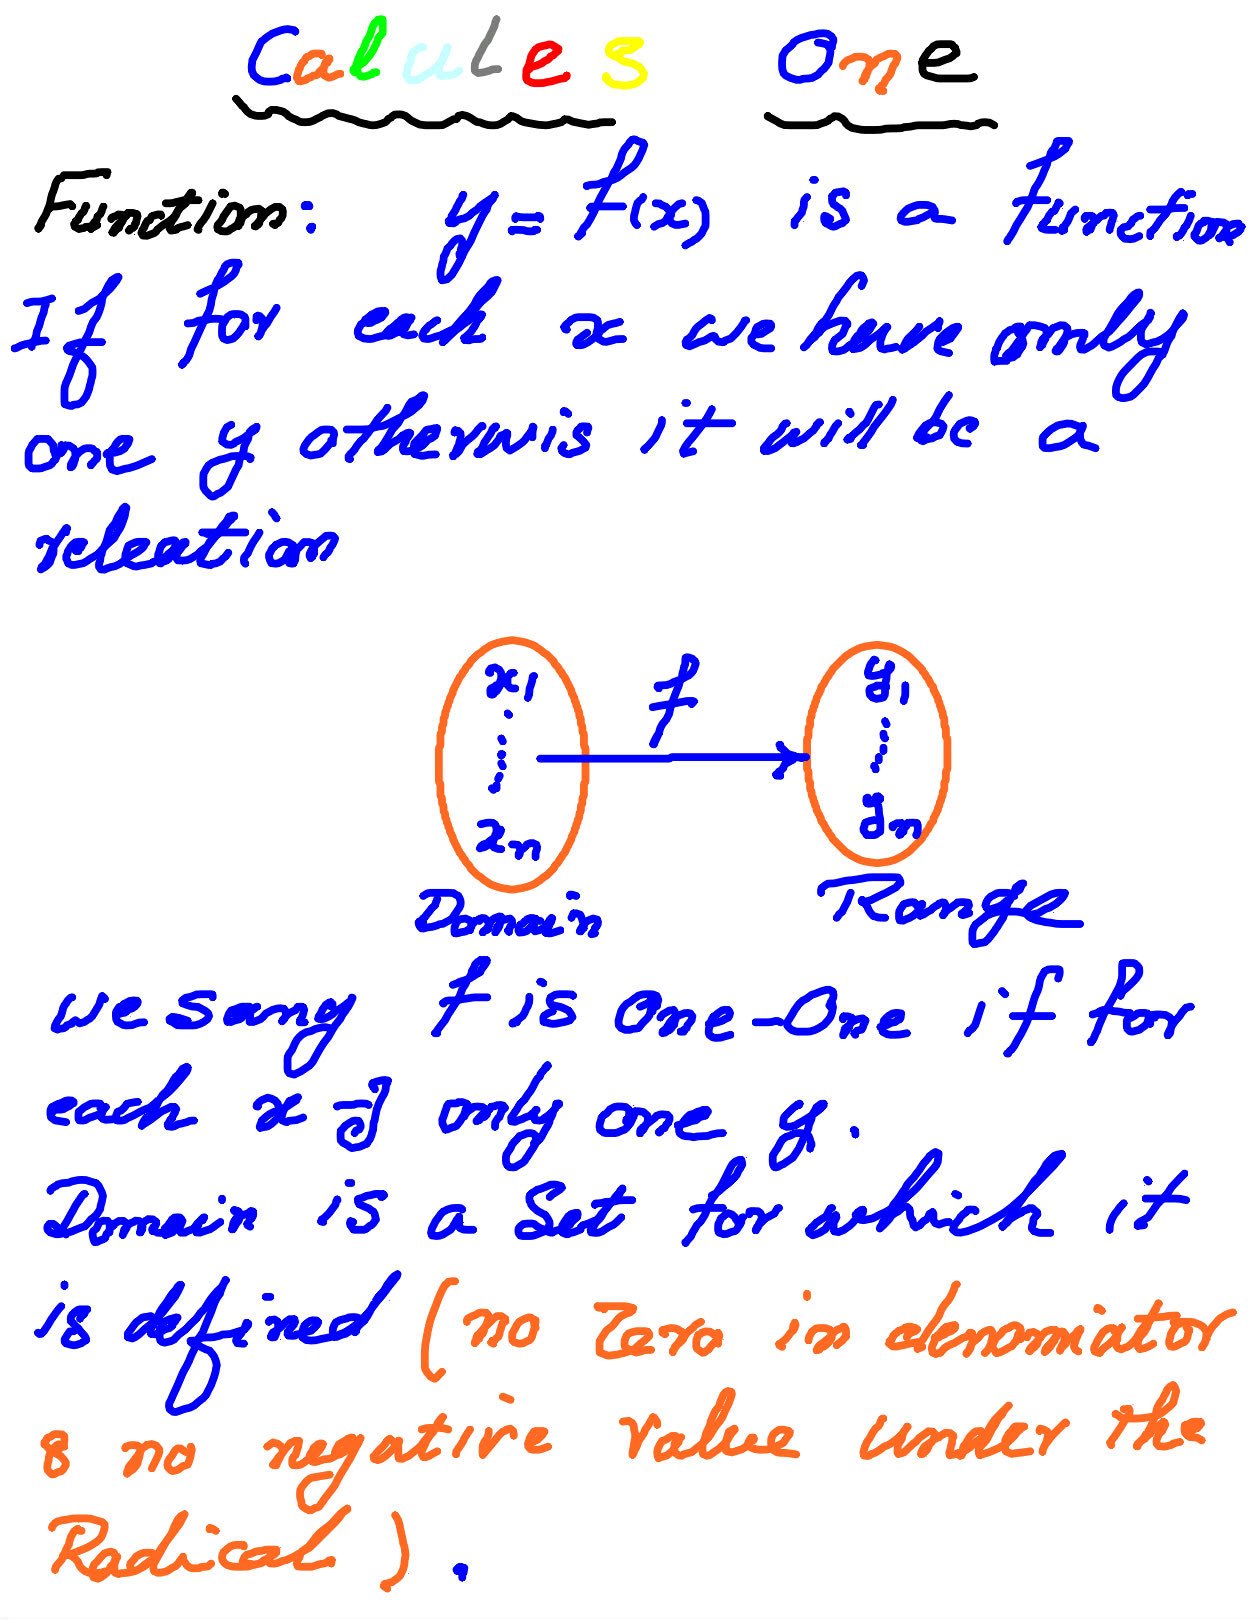 Calules One
Function: y = f(x) is a function
If for each x we have only
one y otherwis it will be a
releation
x1 f y1
xn yn
Domain Range
we sany f is One-One if for
each x ∃ only one y.
Domain is a Set for which it
is defined (no Zero in denomiator
& no negative value under the
Radical).